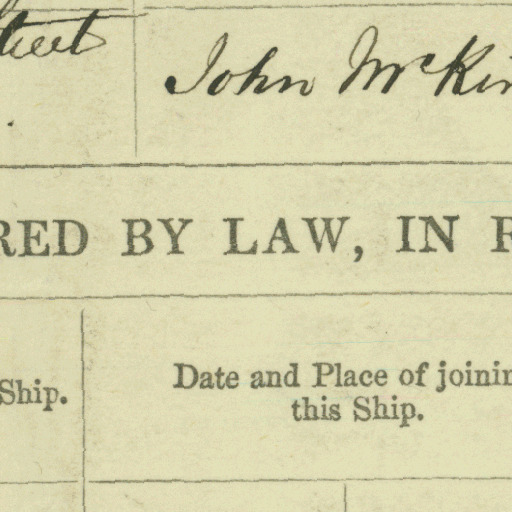 treet
John McKin
RED BY LAW, IN R
Ship.
Date and Place of joinin
this Ship.